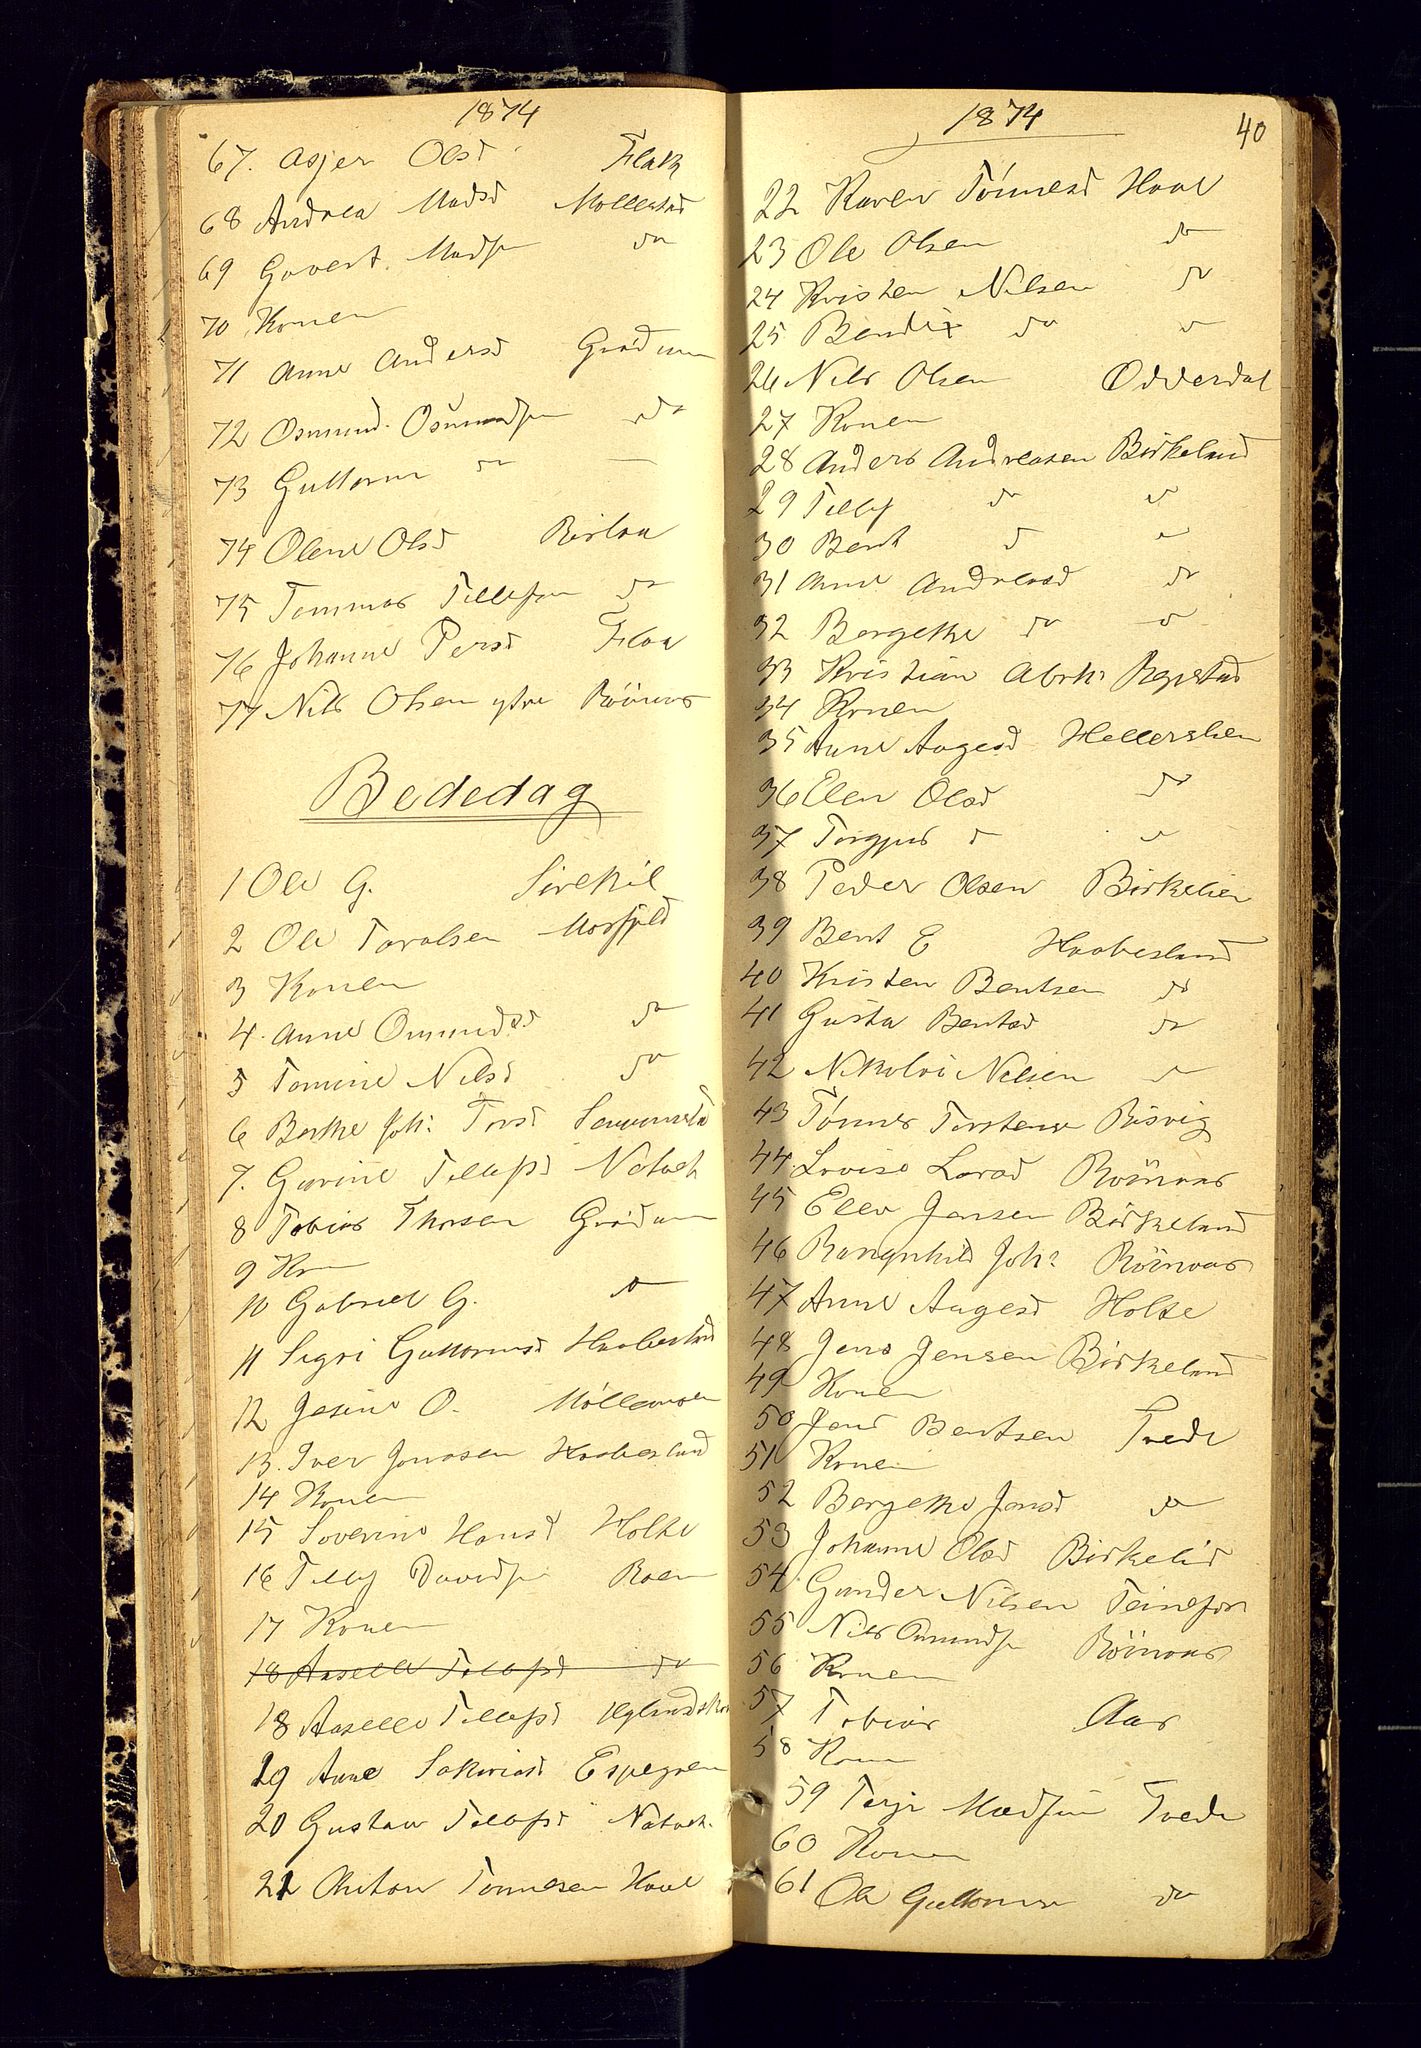 1874
67. Asjer Olsd Flak
68 Andrea Madsd Mollestad
69 Govert Madsn do
70 Konen
71 Anne Andersd Grødum
72 Osmund Osmundsn do
73 Guttorm do —
74 Olene Olsd Birkan
75 Tommas Tellefsen do
76 Johanne Persd Flaa
77 Nils Olsen ytre Röinaas
Bededag
1 Ole G. Sirekil
2 Ole Taralsen Mosfjeld
3 Konen
4. Anne Omundsd do
5 Tomine Nilsd do
6 Berthe Joh: Torsd
7. Gurine Tellefsd Natvet
8 Tobias Thorsen Grødum
9 Kon
10 Gabriel G. do
11 Sigri Guttormsd Haabesland
12 Jesine O. Möllemoen
13. Iver Jonasen Haabesland
14 Konen
15 Soverine Hansd Holte
16 Tellef Davidsn Roen
17 Konen
18 Aaselle Tellefsd do
18 Aaselle Tellefsd
19 Anne Sakariasd Espegren
20 Gustav Tellefsd Natvet.
21 Anton Tønnesen Haal
1874
40
22 Karen Tönnesd Haal
23 Ole Olsen do
24 Kristen Nilsen do
25 Bendix do do
26 Nils Olsen Odderdal
27 Konen
28 Anders Andreasen Birkeland
29 Tellef do do
30 Bent do do
31 Anne Andreasd do
32 Bergethe do do
33 Kristian Abrh: Repstad
34 Konen
35 Anne Aagesd Hellerslien
36 Elen Olsd do
37 Torgjus d do
38 Peder Olsen Birkelien
39 Bent E Haabesland
40 Kristen Bentsen do
41 Gusta Bentsd do
42 Nikolai Nilsen do
43 Tönnes Torstens Risvig
44 Lovise Larsd Röinaas
45 Ellev Jensen Birkeland
46 Rangnhild Joh: Röinaas
47 Anne Aagesd Holte
48 Jens Jensen Birkeland
49 Konen
50 Jens Bentsen Tvede
51 Konen
52 Bergethe Jensd do
53 Johanne Olsd Birkelid
54 Gunder Nilsen Teinefos
55 Nils Omundsn Röinaas
56 Konen
57 Tobias Aas
58 Konen
59 Terje Madsen Tvede
60 Konen
61 Ole Guttormsn do